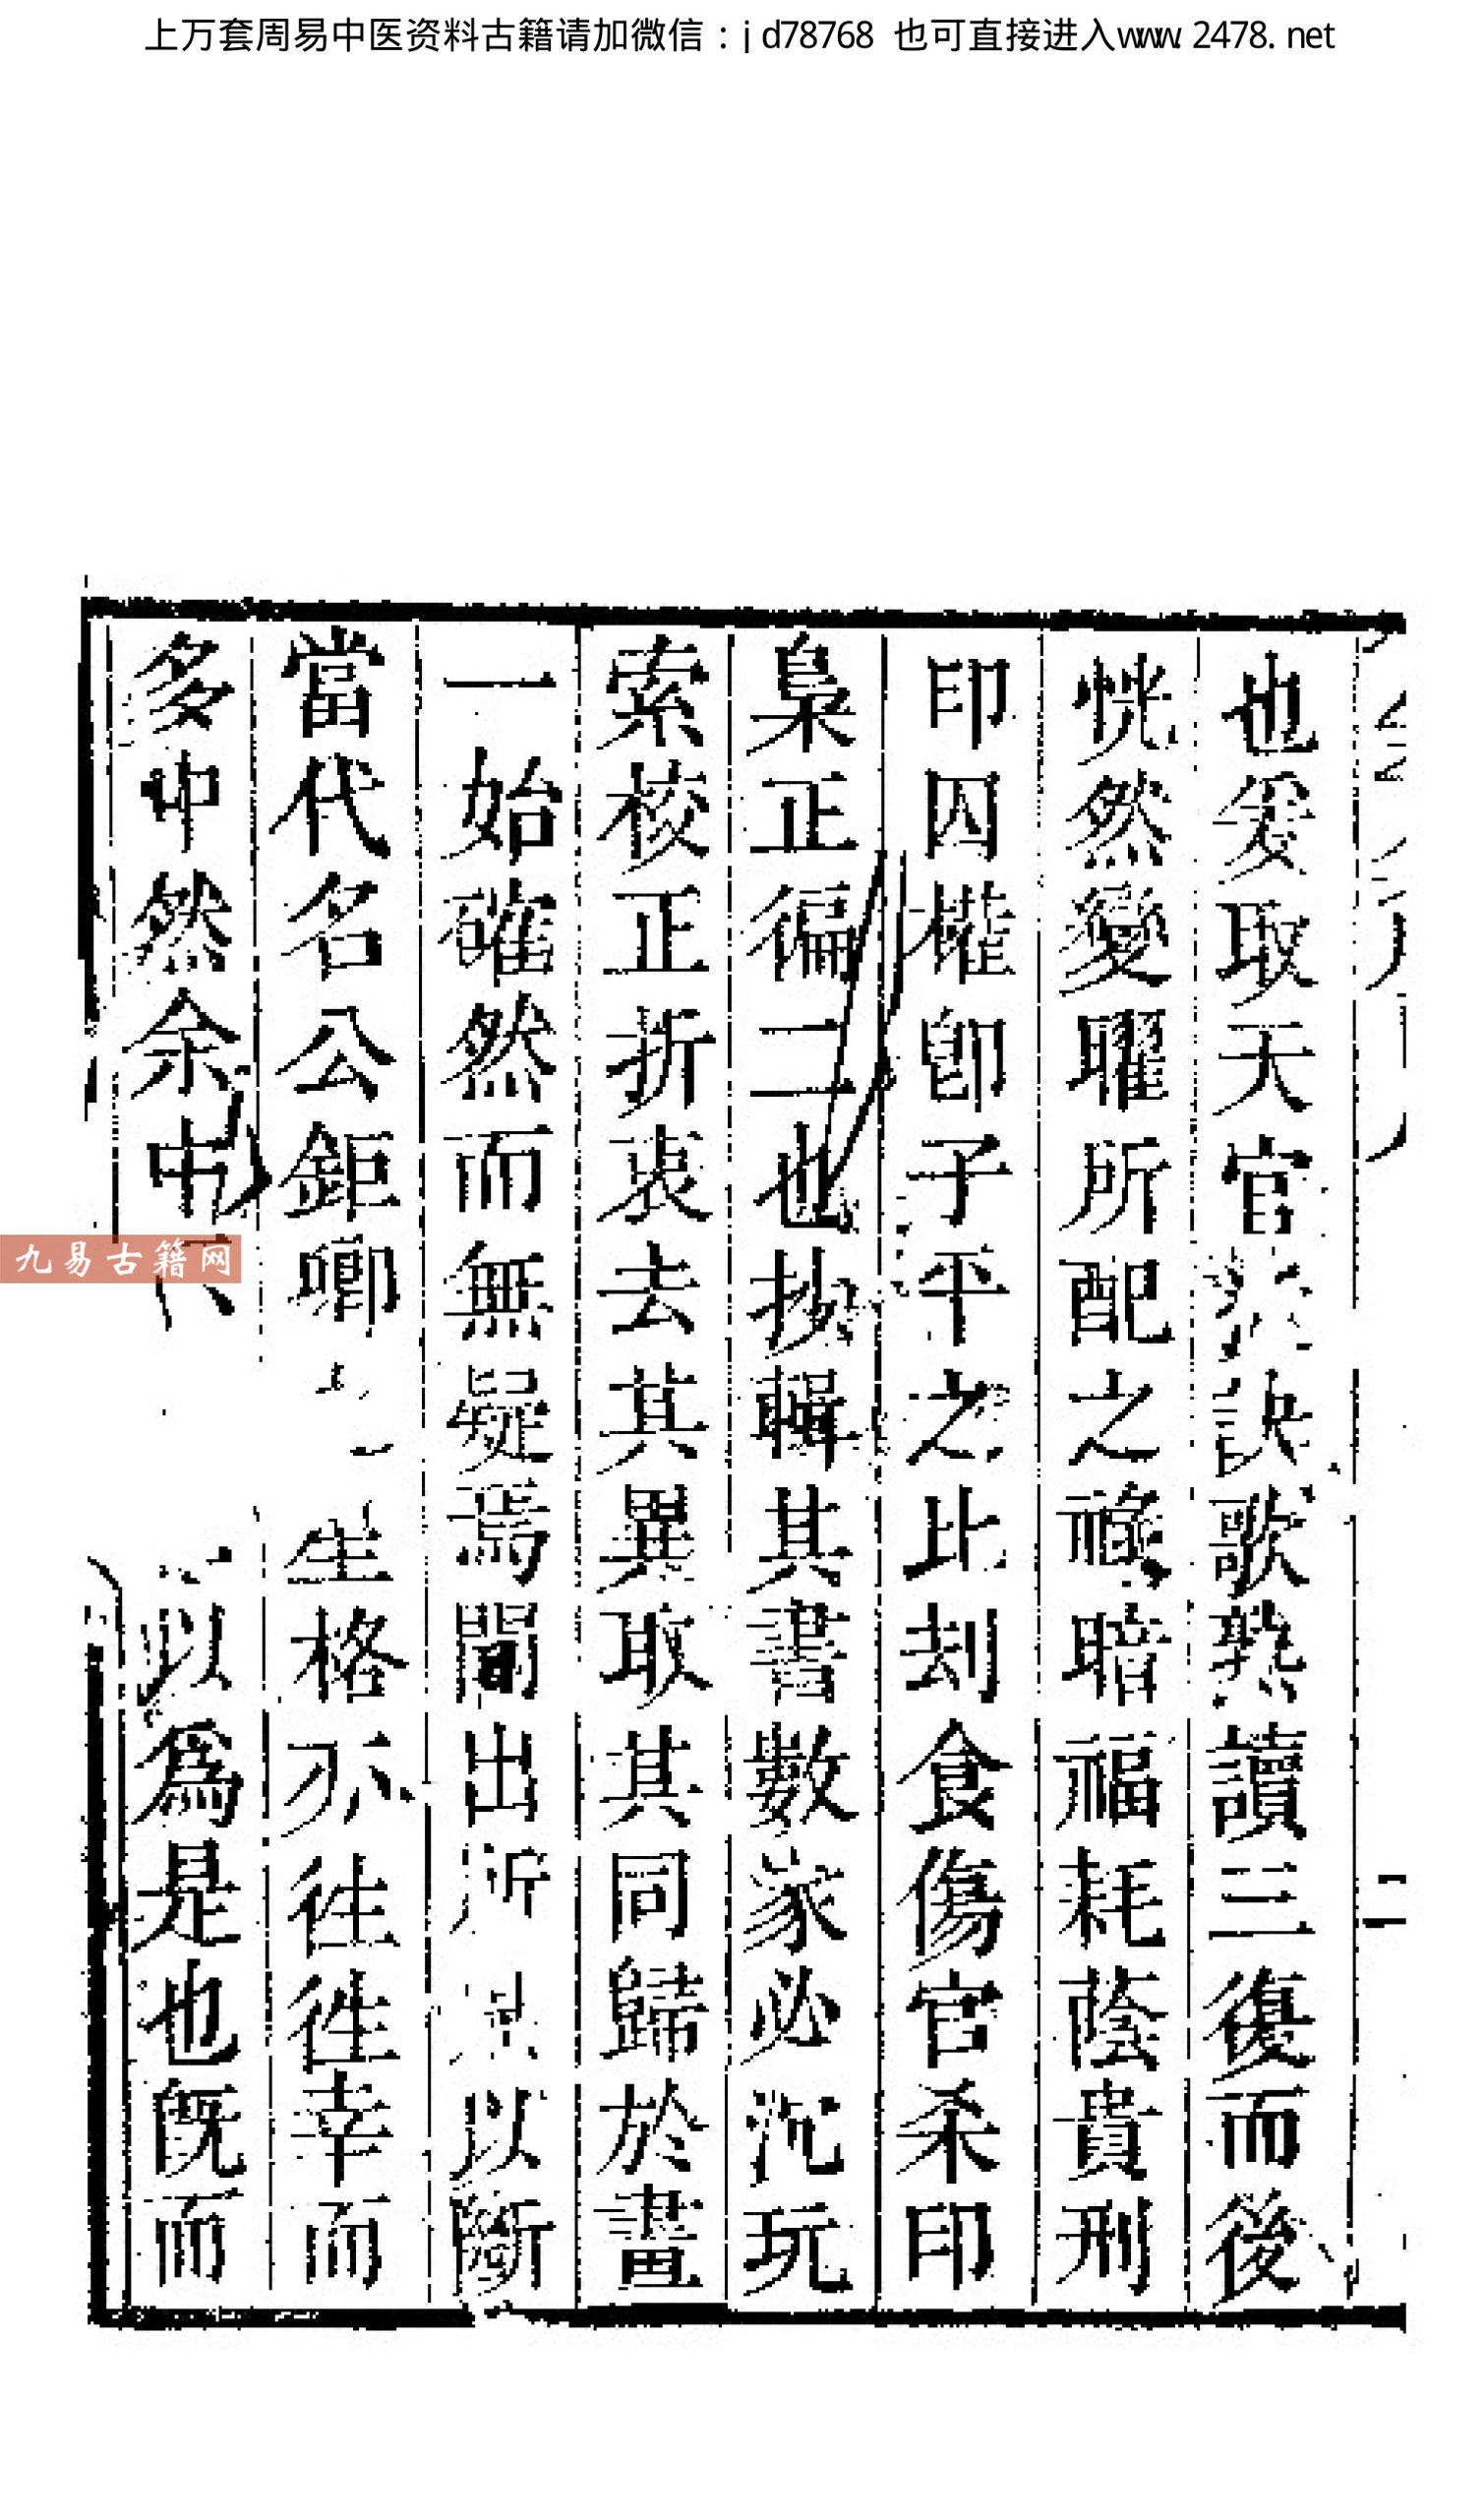 上万套周易中医资料古籍请加微信：jd78768 也可直接进入www.2478.net
也爰取天官訣歌熟讀三復而後
恍然變曜所配之祿暗福耗蔭貴刑
印囚權卽子平之比刦食傷官杀印
梟正徧二也抄輯其書數家必沉玩
索校正折衷去其異取其同歸於畫
一始確然而無疑焉間出所以斷
當代名公鉅卿生格亦往徃幸而
多中然余中以爲是也旣而
二
九易古籍网